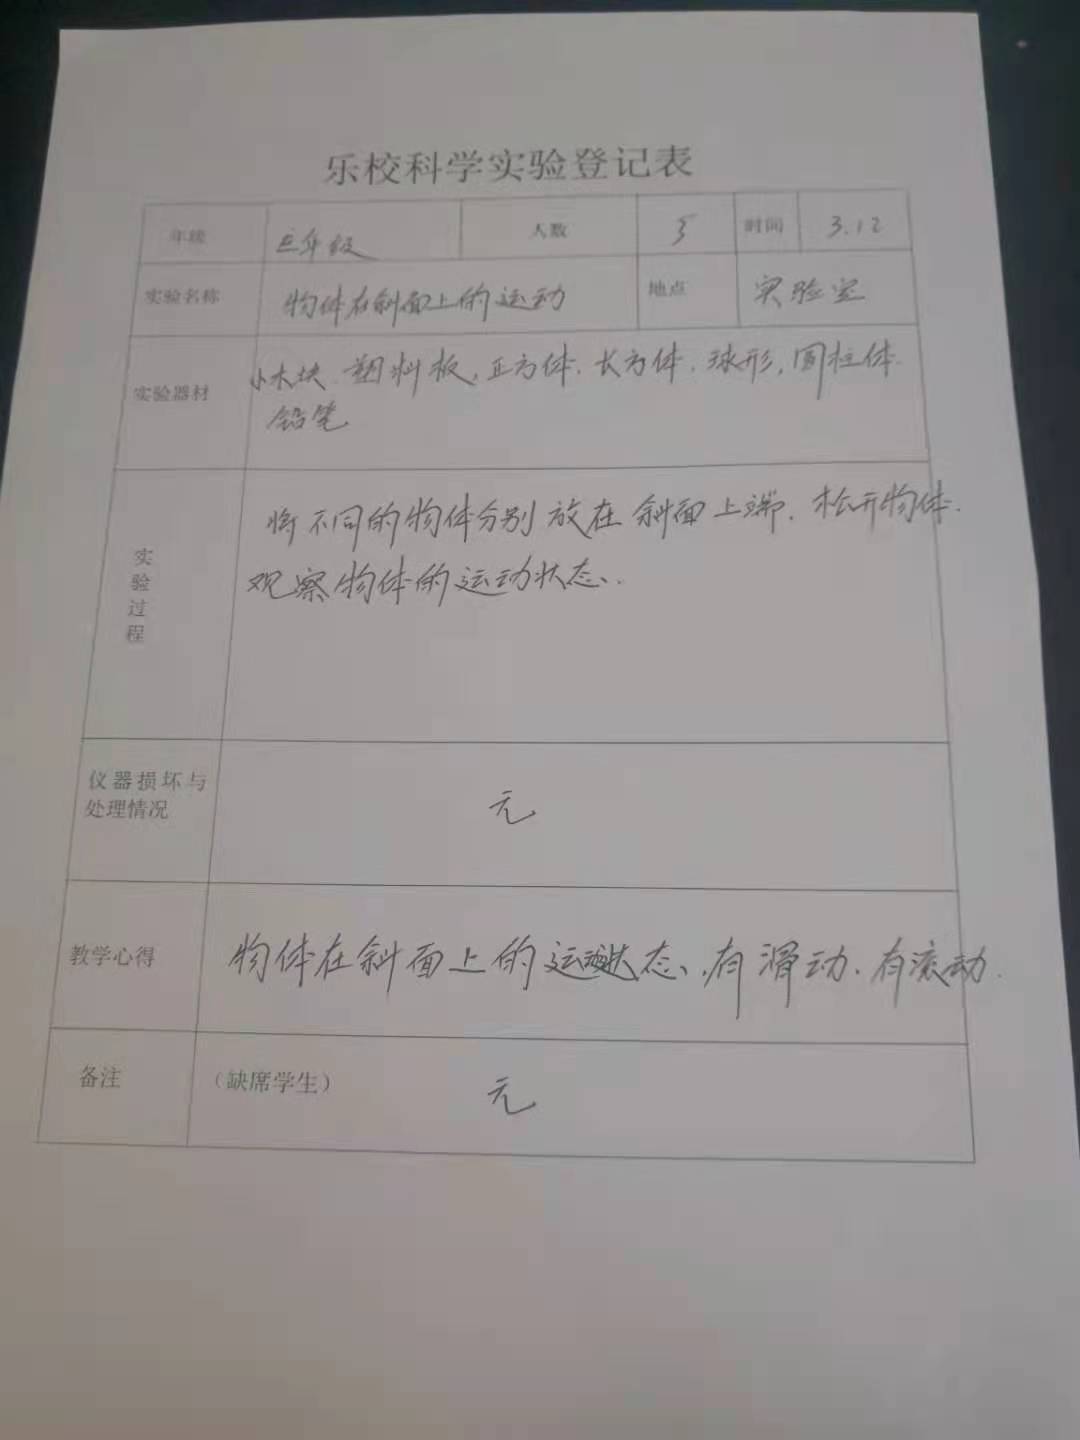 乐校科学实验登记表
年级 三年级 人数 5 时间 3.12
实验名称 物体在斜面上的运动 地点 实验室
实验器材 小木块、塑料板、正方体、长方体、球形、圆柱体、
铅笔
实验过程
将不同的物体分别放在斜面上端、松开物体、
观察物体的运动状态、
仪器损坏与
处理情况
无
教学心得 物体在斜面上的运动状态、有滑动、有滚动.
备注 (缺席学生) 无